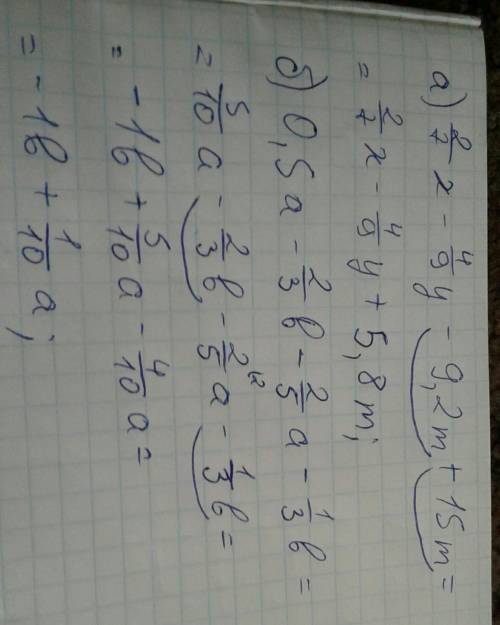 а) 2/7 x - 4/9 y - 9,2m + 15m =
= 2/7 x - 4/9 y + 5,8m;
б) 0,5a - 2/3 b - 2/5 a - 1/3 b =
= 5/10 a - 2/3 b - 2/5 \2 a - 1/3 b =
= -1b + 5/10 a - 4/10 a =
= -1b + 1/10 a;